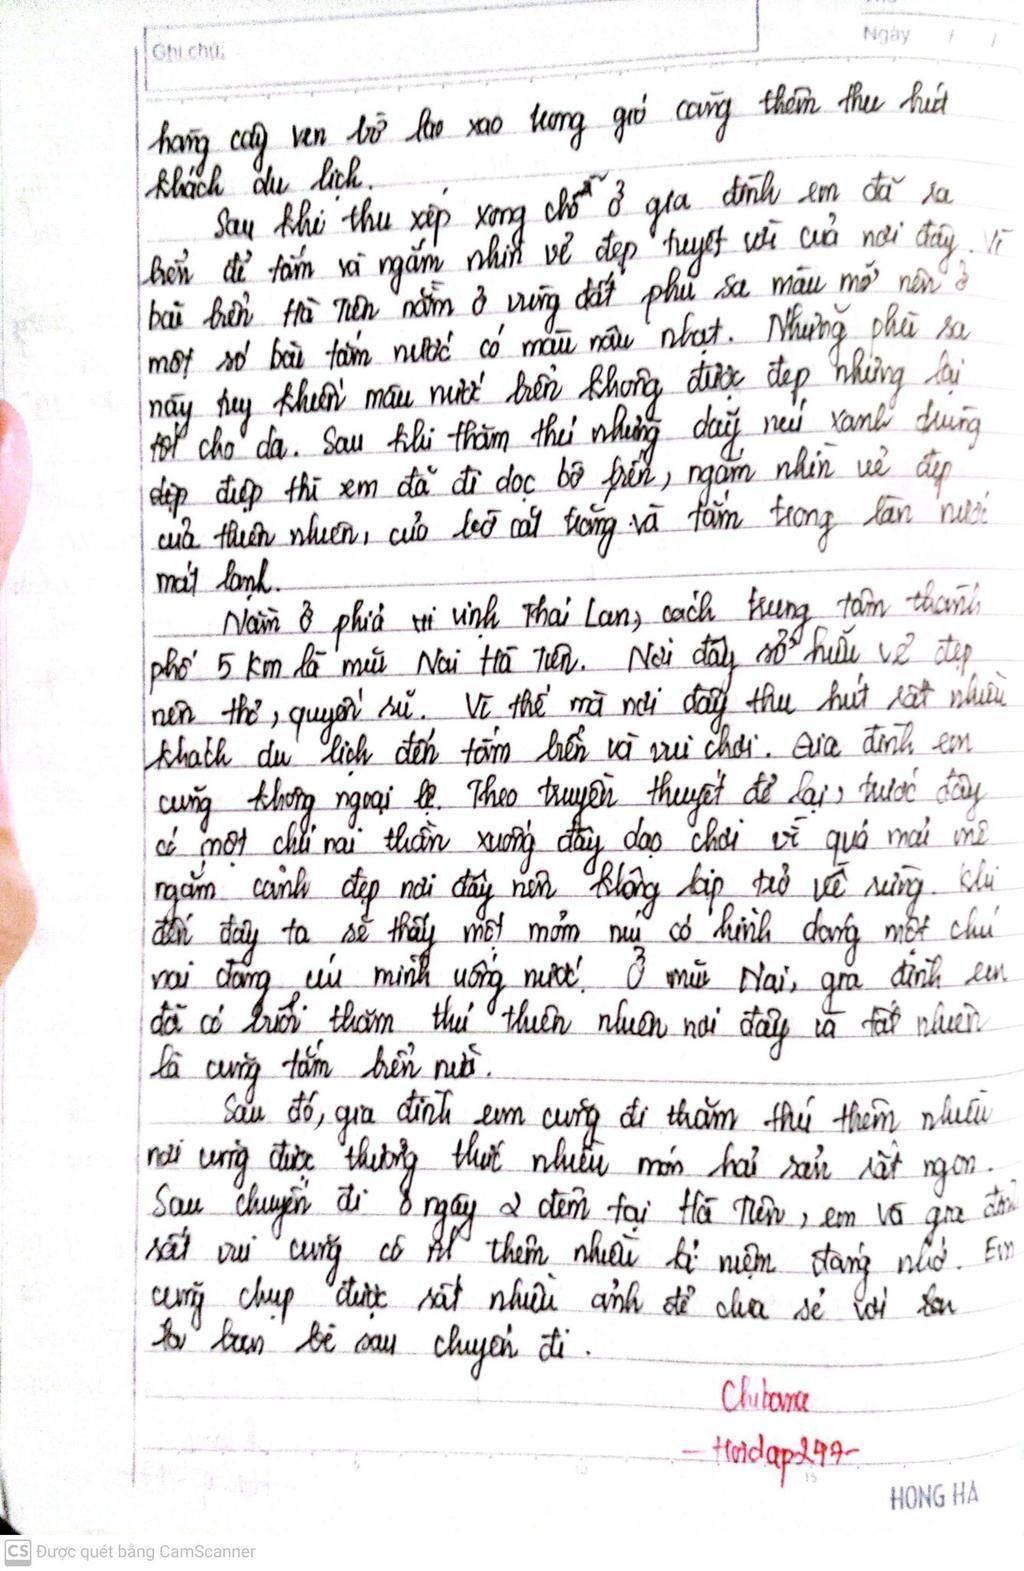 Ghi chú:
Ngày / /
hàng cây ven bờ lao xao trong gió càng thêm thu hút
khách du lịch.
Sau khi thu xếp xong chỗ ở gia đình em đã ra
biển để tắm và ngắm nhìn vẻ đẹp tuyệt vời của nơi đây. Vì
bãi biển Hà Tiên nằm ở vùng đất phù sa màu mỡ nên ở
một số bãi tắm nước có màu nâu nhạt. Nhưng phù sa
này tuy khiến màu nước biển không được đẹp nhưng lại
tốt cho da. Sau khi thăm thú những dãy núi xanh trùng
điệp thì em đã đi dọc bờ biển, ngắm nhìn vẻ đẹp
của thiên nhiên, của bờ cát trắng và tắm trong làn nước
mát lạnh.
Nằm ở phía vịnh Thai Lan, cách trung tâm thành
phố 5 km là mũi Nai Hà Tiên. Nơi đây sở hữu vẻ đẹp
nên thơ, quyến rũ. Vì thế mà nơi đây thu hút rất nhiều
khách du lịch đến tắm biển và vui chơi. Gia đình em
cũng không ngoại lệ. Theo truyền thuyết để lại, trước đây
có một chú nai thần xuống đây dạo chơi vì quá mải mê
ngắm cảnh đẹp nơi đây nên không kịp trở về rừng. Khi
đến đây ta sẽ thấy một mỏm núi có hình dạng một chú
nai đang cúi mình uống nước. Ở mũi Nai, gia đình em
đã có buổi thăm thú thiên nhiên nơi đây và tất nhiên
là cũng tắm biển nữa.
Sau đó, gia đình em cũng đi thăm thú thêm nhiều
nơi cũng được thưởng thức nhiều món hải sản rất ngon.
Sau chuyến đi 3 ngày 2 đêm tại Hà Tiên, em và gia đình
rất vui cũng có thêm nhiều kỉ niệm đáng nhớ. Em
cũng chụp được rất nhiều ảnh để chia sẻ với
bạn bè sau chuyến đi.
- Hoidap247-
HONG HA
CS Được quét bằng CamScanner